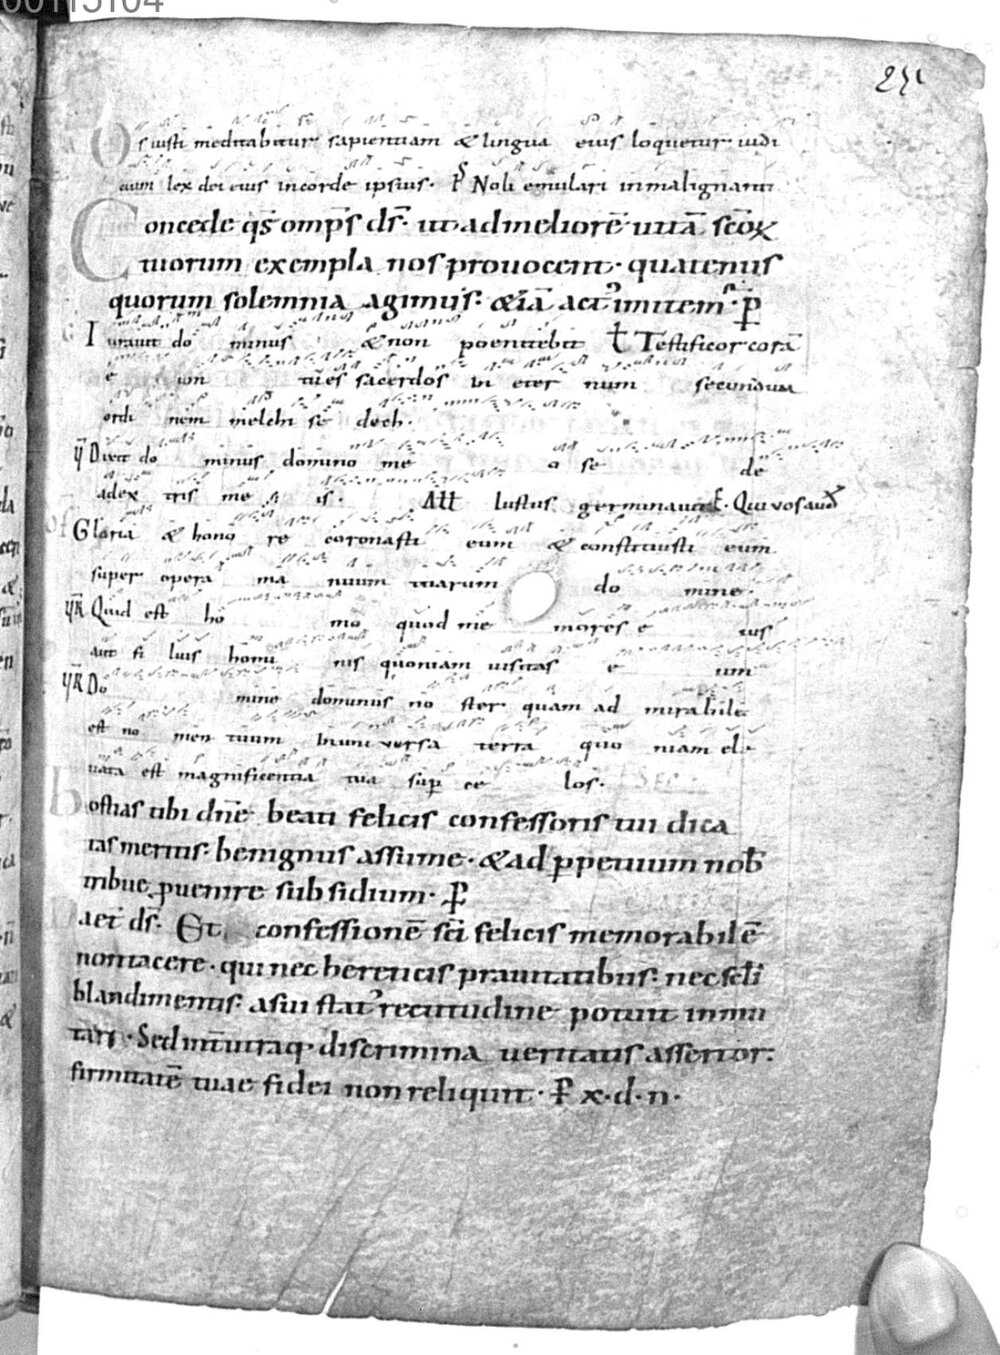 00115104
251
Os iusti meditabitur sapientiam & lingua eius loquetur iudi
cium lex dei eius incorde ipsius. P̄S Noli emulari inmalignanti
Concede qs̄ omp̄s ds̄. ut admeliorē uitā sc̄oꝝ
tuorum exempla nos prouocent. quatenus
quorum solemnia agimus. &iā act᾽ imitem᾽. P̄
Iurauit do minus & non poenitebit Testificor corā
e um tu es sacerdos in eter num secundum
ordi nem melchi se dech.
V̄ Dixit do minus domino me o se de
adex tris me is. All Iustus germinauit. Qui vos aud
of Gloria & hono re coronasti eum & constituisti eum
super opera ma nuum tuarum do mine.
V̄R Quid est ho mo quod me mores e ius
aut fi lius homi nis quoniam uisitas e um
V̄R Do mine dominus no ster quam ad mirabile
est no men tuum inuni versa terra quo niam ele
uata est magnificentia tua sup ce los.
hostias tibi dn̄e beati felicis confessoris tui dica
tas meritis. benignus assume. & ad ꝑpetuum nob̄
tribue ꝓuenire subsidium. P̄
aet̄ ds̄. Et confessionē sc̄i felicis memorabilē
nontacere. qui nec hereticis prauitatibus. nec sc̄li
blandimentis. asui stat᾽ rectitudine potuit inmu
tari. Sed int̄ utraq discrimina ueritatis assertor.
firmitatē tuae fidei non reliquit. P̄ x. d. n.